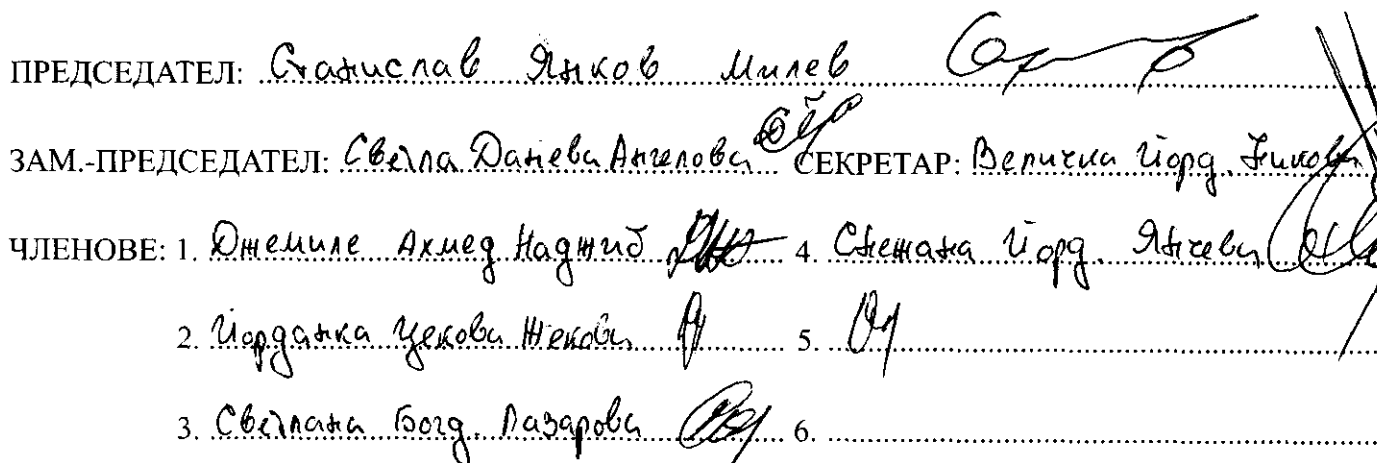 ПРЕДСЕДАТЕЛ: Станислав Янков Милев
ЗАМ.-ПРЕДСЕДАТЕЛ: Светла Данева Ангелова СЕКРЕТАР: Величка Йорд. Николова
ЧЛЕНОВЕ: 1. Джемиле Ахмед Наджиб 4. Снежана Йорд. Янчева
2. Йорданка Цекова Жекова 5.
3. Светлана Богд. Лазарова 6.